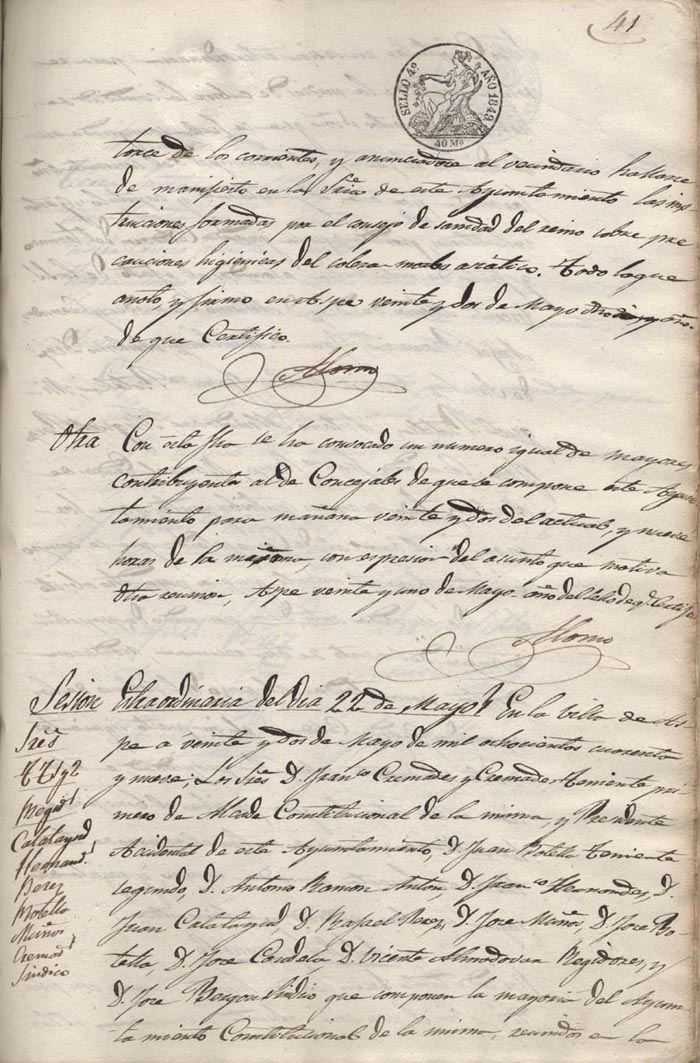 41
SELLO 4º AÑO 1849
40 Ms
torce de los corrientes, y anunciadose al vecindario hallarse
de manifiesto en la Sría de este Ayuntamiento las ins
trucciones formadas por el consejo de sanidad del reino sobre pre
cauciones higienicas del colera morbo asiatico. Todo lo que
anoto, y firmo en Aspe veinte y dos de Mayo
de que Certifico.
Alonso
Otra Con esta fha se ha convocado un numero igual de mayores
contribuyentes al de Concejales de que se compone este Ayun
tamiento para mañana veinte y dos del actual, y nueve
horas de la mañana, con espresion del asunto que motiva
dha reunion, Aspe veinte y uno de Mayo año del Sello de q. Certifo
Alonso
Sesion Extraordinaria del Dia 22 de Mayo En la Villa de As
pe a veinte y dos de Mayo de mil ochocientos cuarenta
y nueve; Los Sres D. Franco Cremades y Cremades teniente pri
mero de Alcade Constitucional de la misma, y Presidente
Accidental de este Ayuntamiento, D. Juan Botella teniente
segundo, D. Antonio Ramon Anton, D. Franco Hernandes, D.
Juan Calatayud, D. Rafael Perez, D. Jose Muños, D. Jose Bo
tella D. Jose Candela D. Vicente Almodovar Regidores, y
D. Jose Sindico que componen la mayoria del Ayun
tamiento Constitucional de la misma, reunidos en la
Sres
TT 1 y 2
Regids
Calatayud
Hernands
Perez
Botella
Muños
Cremads
Sindico